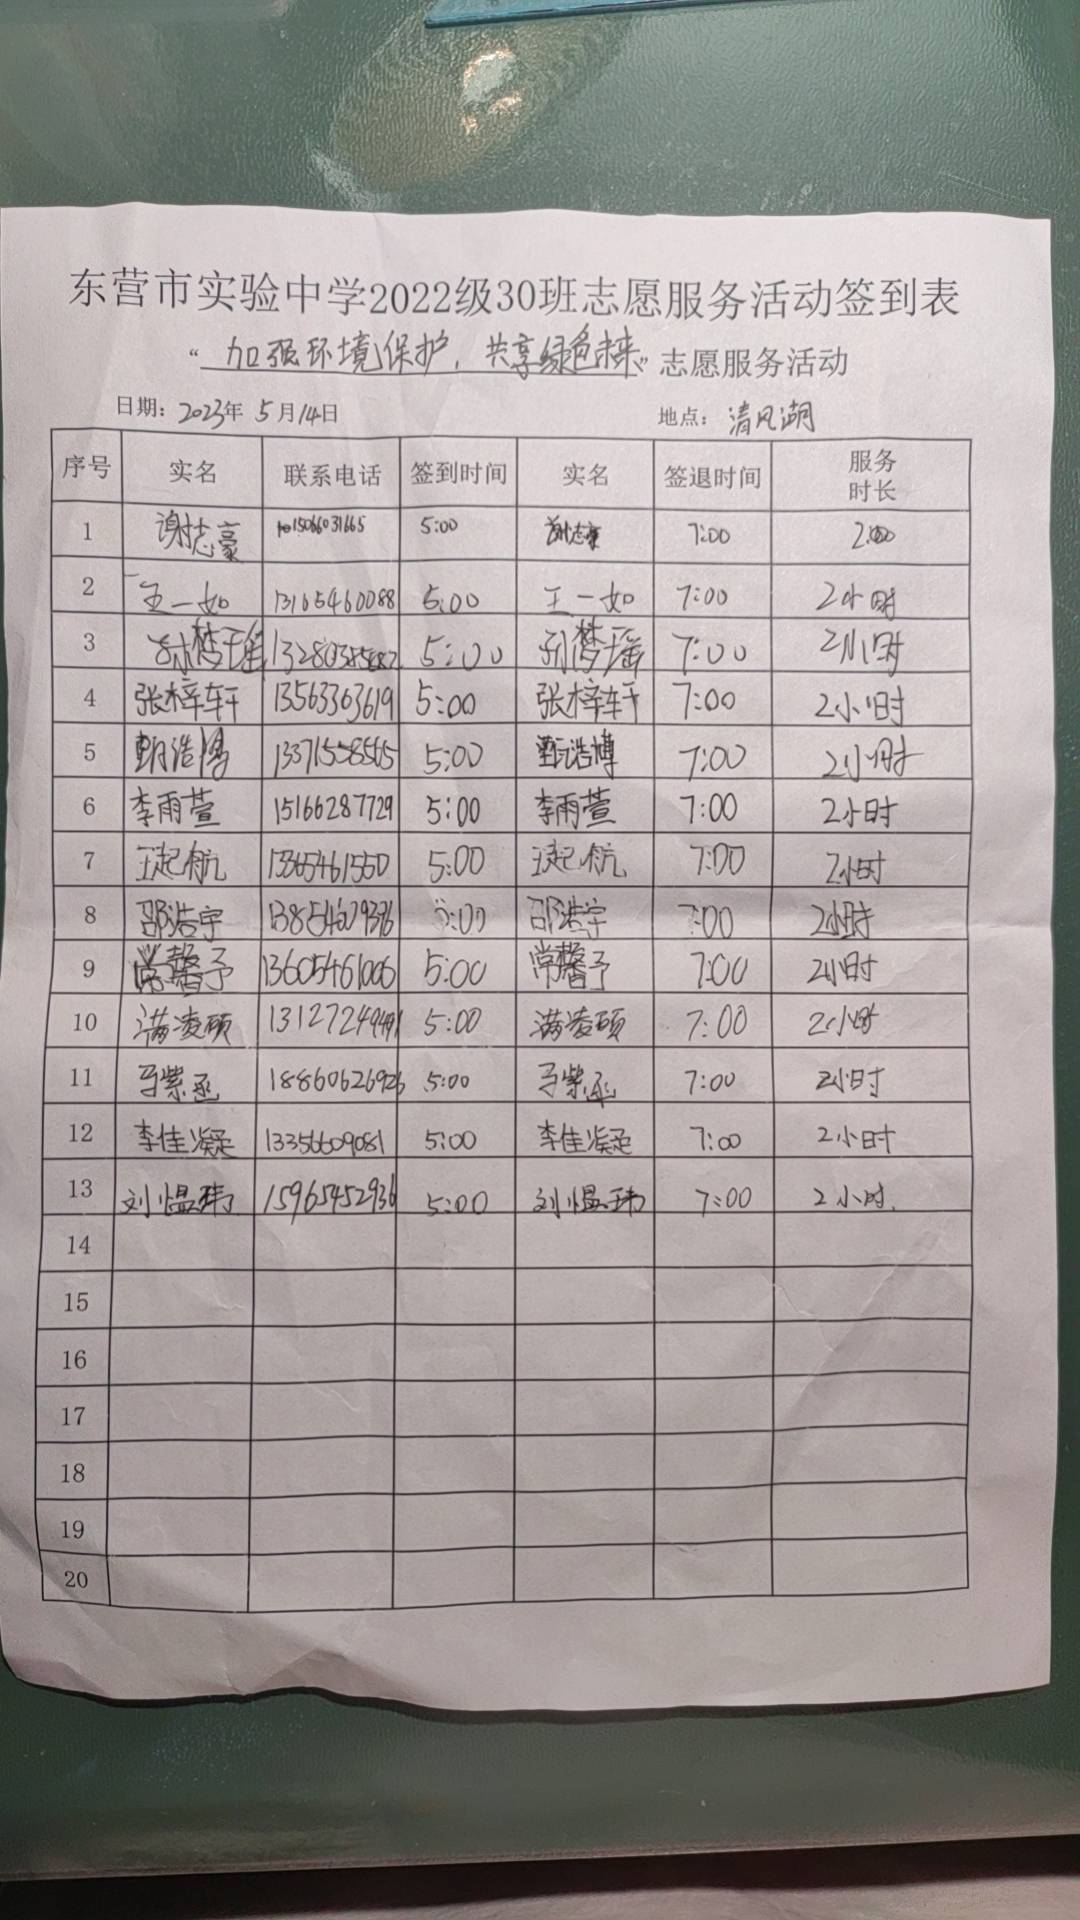 东营市实验中学2022级30班志愿服务活动签到表
“加强环境保护,共享绿色未来”志愿服务活动
日期:2023年5月14日 地点:清风湖
序号 实名 联系电话 签到时间 实名 签退时间 服务时长
1 谢志豪 15066031665 5:00 谢志豪 7:00 2:00
2 王一如 13165460088 5:00 王一如 7:00 2小时
3 孙梦瑶 5:00 孙梦瑶 7:00 2小时
4 张梓轩 13563363619 5:00 张梓轩 7:00 2小时
5 甄浩博 13371558565 5:00 甄浩博 7:00 2小时
6 李雨萱 15166287729 5:00 李雨萱 7:00 2小时
7 王起航 13365461550 5:00 王起航 7:00 2小时
8 邵浩宇 5:00 邵浩宇 7:00 2小时
9 常馨予 13605461006 5:00 常馨予 7:00 2小时
10 满凌硕 5:00 满凌硕 7:00 2小时
11 马紫丞 18860626926 5:00 马紫丞 7:00 2小时
12 李佳凝 13356609081 5:00 李佳凝 7:00 2小时
13 刘愠玮 15965452936 5:00 刘愠玮 7:00 2小时
14
15
16
17
18
19
20